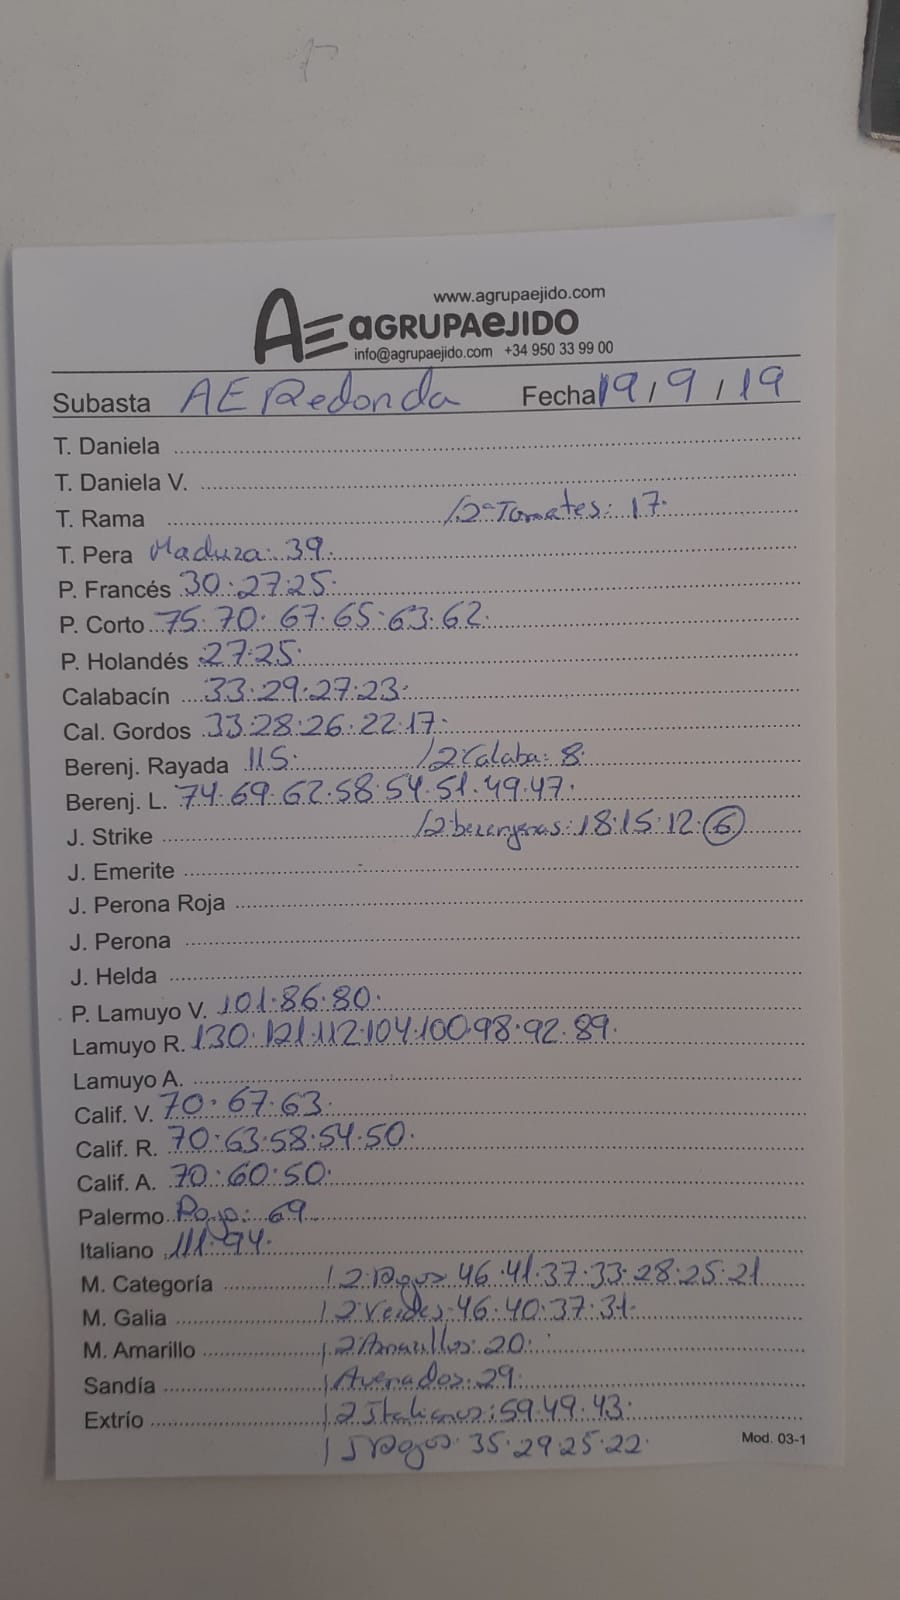 www.agrupaejido.com
AE AGRUPAEJIDO
info@agrupaejido.com +34 950 33 99 00
Subasta AE Redonda Fecha 19/9/19
T. Daniela
T. Daniela V.
T. Rama /2ª Tomates: 17.
T. Pera Maduza: 39.
P. Francés 30.27.25.
P. Corto 75.70.67.65.63.62.
P. Holandés 27.25.
Calabacín 33.29.27.23.
Cal. Gordos 33.28.26.22.17.
Berenj. Rayada 115. /2 Calaba: 8.
Berenj. L. 74.69.62.58.54.51.49.47.
J. Strike /2 berenjenas: 18.15.12.6
J. Emerite
J. Perona Roja
J. Perona
J. Helda
P. Lamuyo V. 101.86.80.
Lamuyo R. 130.121.112.104.100.98.92.89.
Lamuyo A.
Calif. V. 70.67.63.
Calif. R. 70.63.58.54.50.
Calif. A. 70.60.50.
Palermo Rojo: 69.
Italiano 111.94.
M. Categoría /2 Rojos 46.41.37.33.28.25.21
M. Galia /2 Verdes 46.40.37.31.
M. Amarillo /2 Amarillos: 20.
Sandía / Averados: 29.
Extrío /2 Italianos: 59.49.43.
/ S Rojos 35.29.25.22.
Mod. 03-1